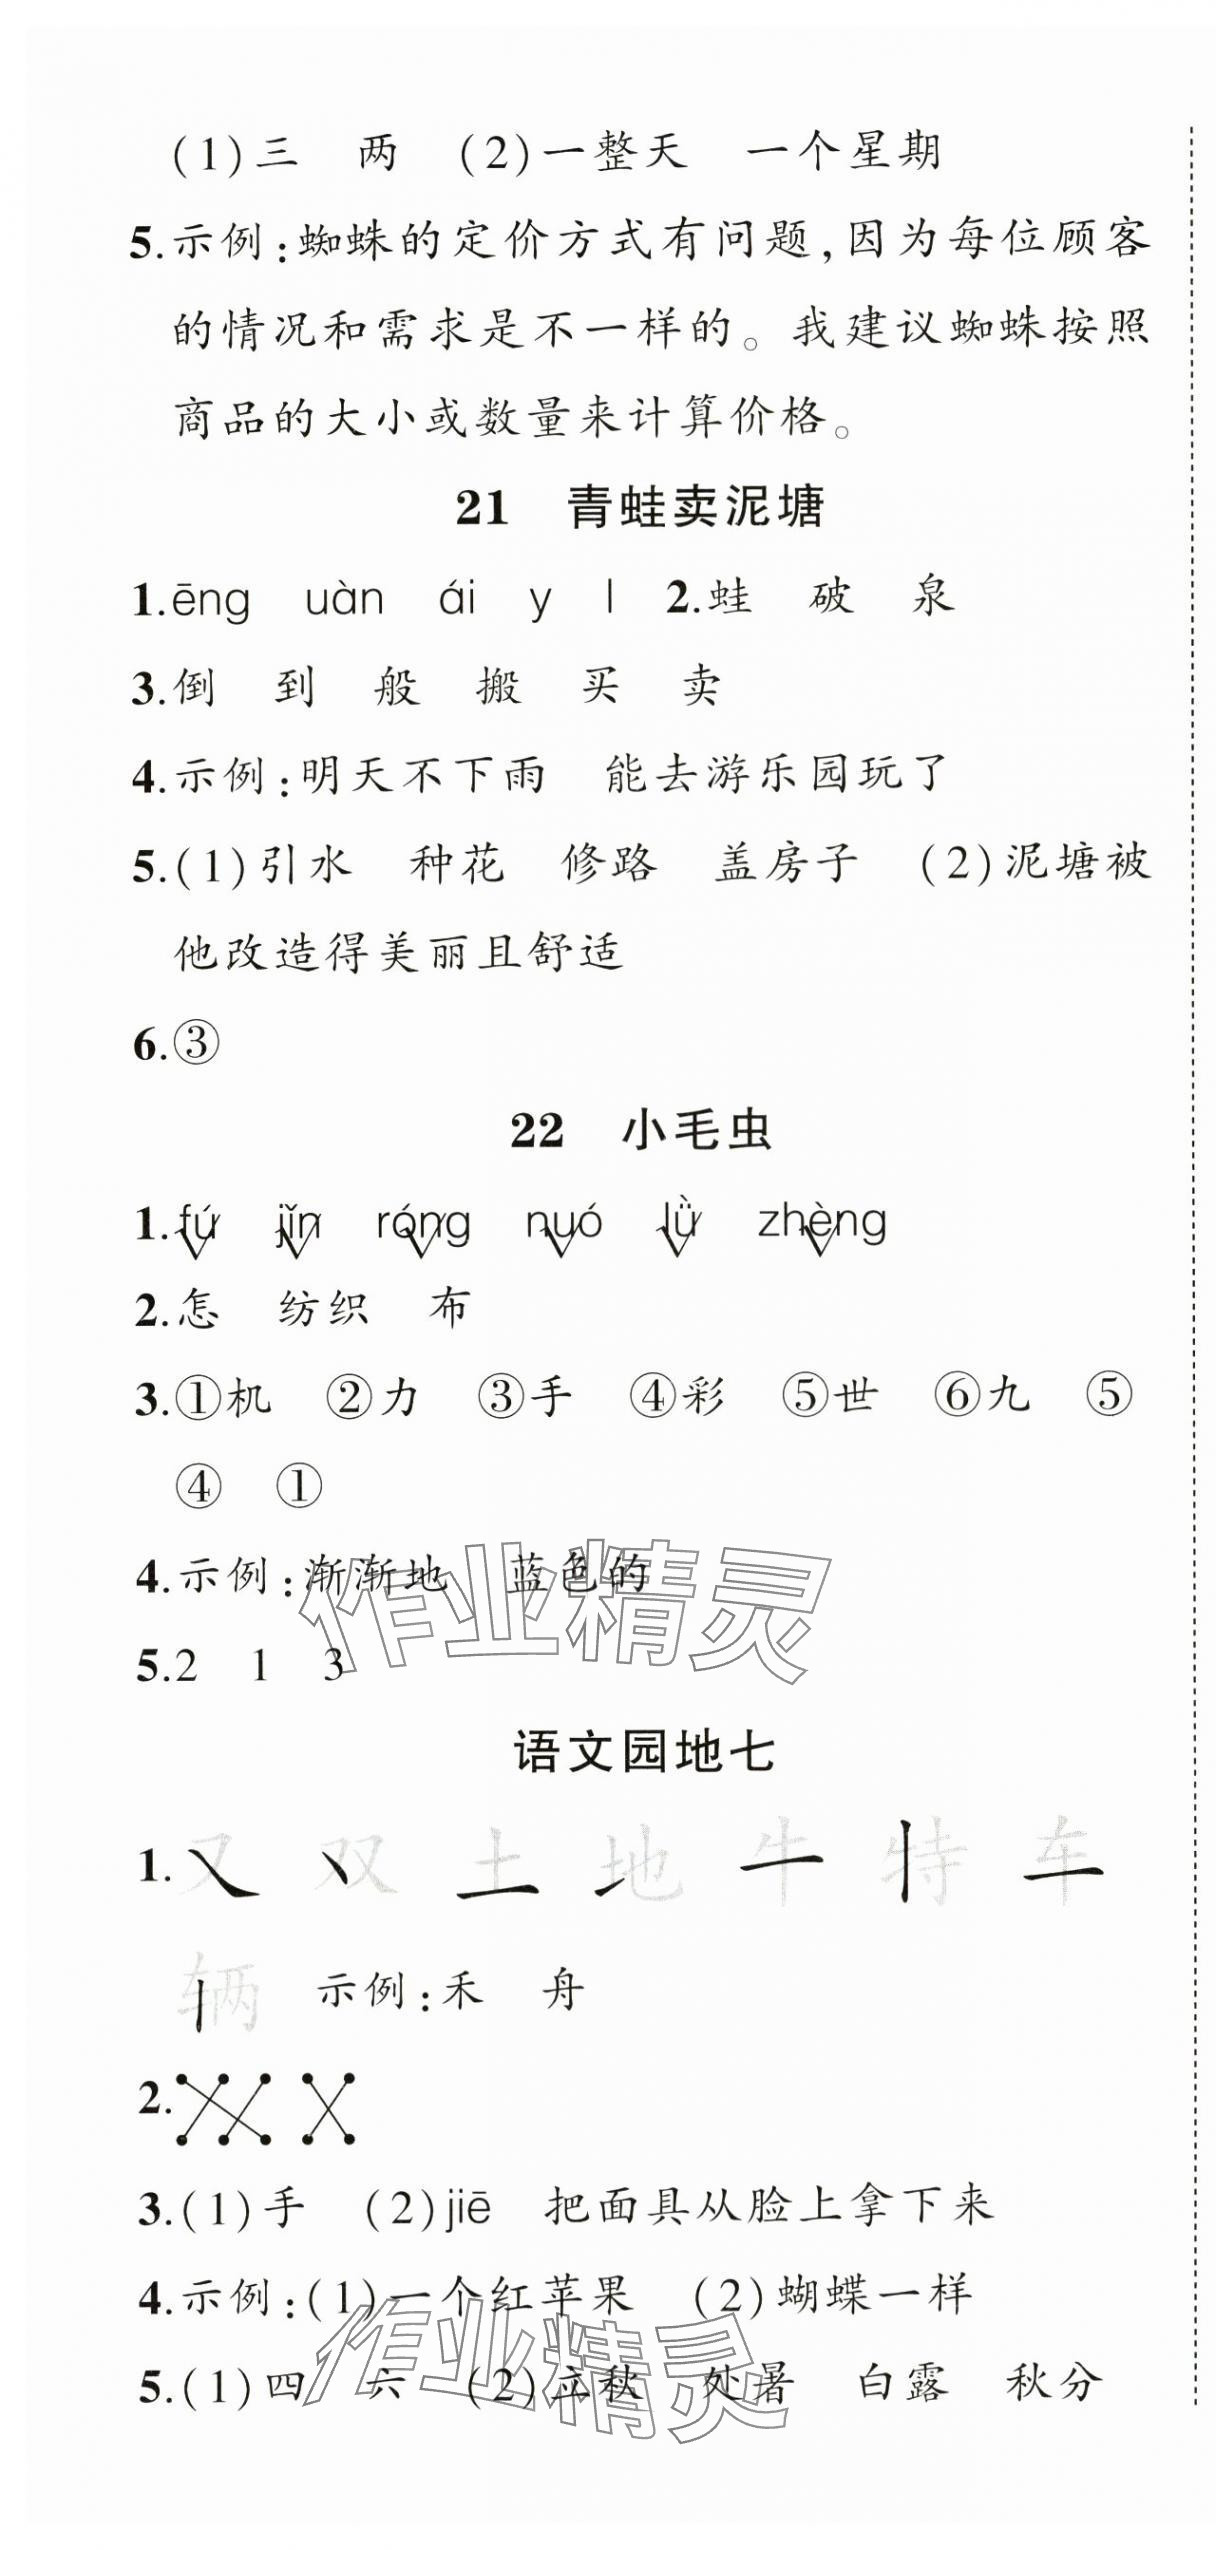 (1)三 两 (2)一整天 一个星期
5.示例:蜘蛛的定价方式有问题,因为每位顾客
的情况和需求是不一样的。我建议蜘蛛按照
商品的大小或数量来计算价格。
21 青蛙卖泥塘
1.ēng uàn ái y l 2.蛙 破 泉
3.倒 到 般 搬 买 卖
4.示例:明天不下雨 能去游乐园玩了
5.(1)引水 种花 修路 盖房子 (2)泥塘被
他改造得美丽且舒适
6.③
22 小毛虫
1.fú jǐn róng nuó lǜ zhèng
2.怎 纺织 布
3.①机 ②力 ③手 ④彩 ⑤世 ⑥九 ⑤
④ ①
4.示例:渐渐地 蓝色的
作业精灵
5.2 1 3
语文园地七
1.又 双 土 地 牛 特 车
辆 示例:禾 舟
2.
3.(1)手 (2)jiē 把面具从脸上拿下来
4.示例:(1)一个红苹果 (2)蝴蝶一样
作业精灵
5.(1)四 六 (2)立秋 处暑 白露 秋分